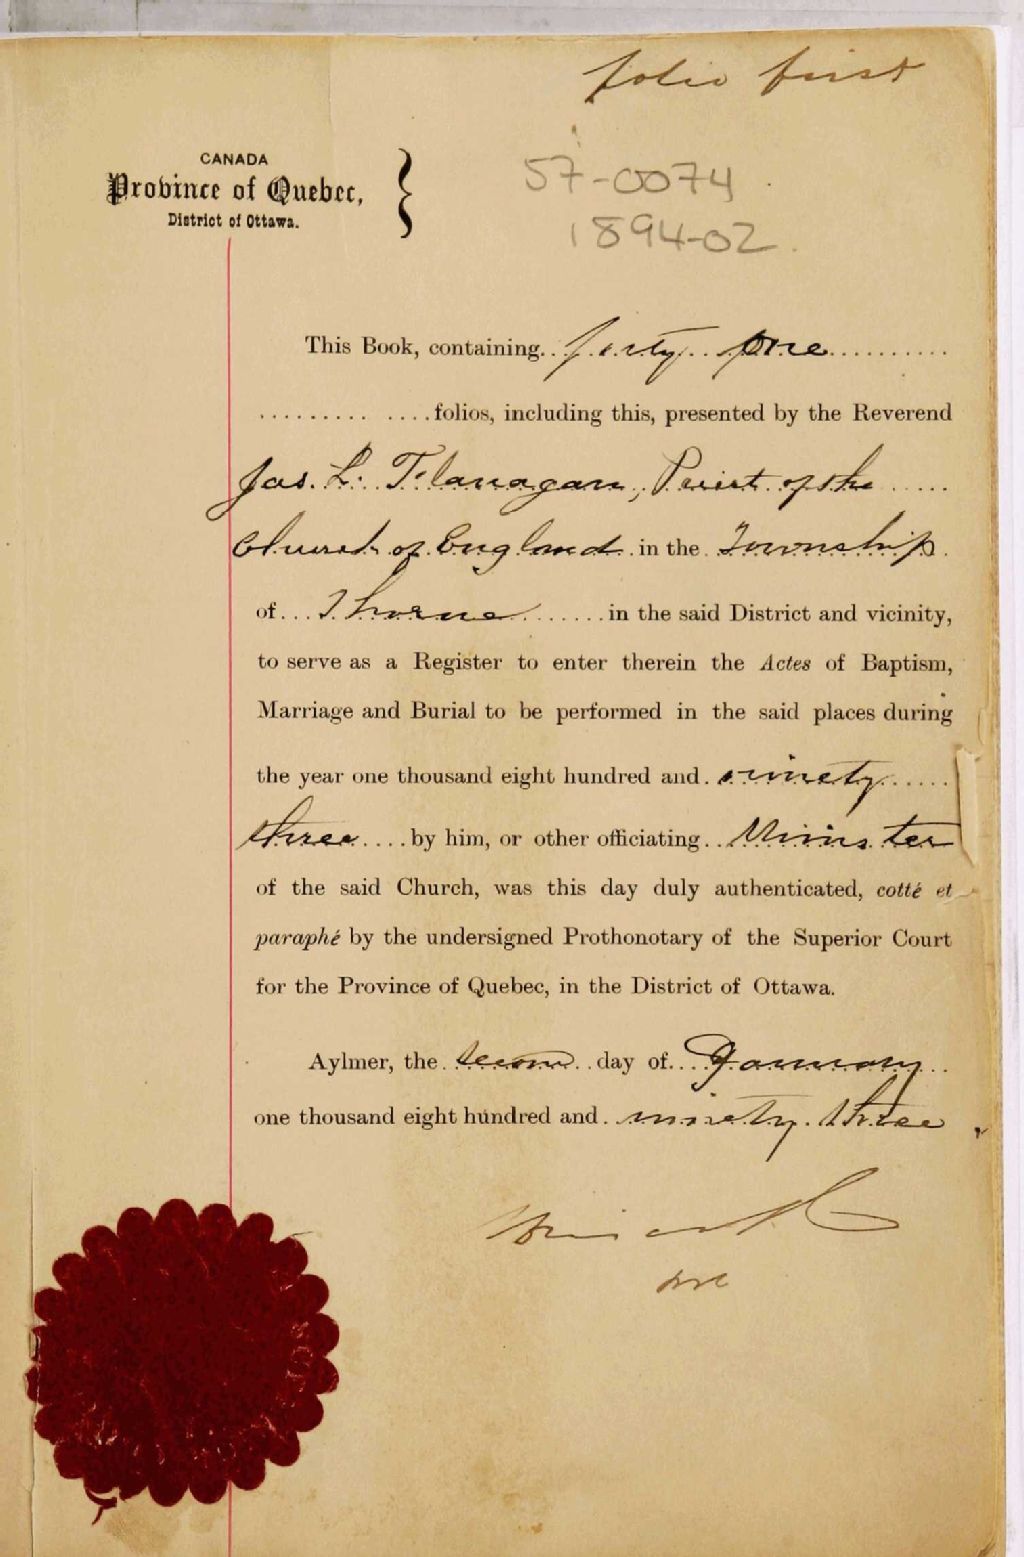 folio first
CANADA
Province of Quebec,
District of Ottawa.
57-0074
1894-02
This Book, containing forty one
folios, including this, presented by the Reverend
Jas. L. Flanagan, Priest of the
Church of England in the Township
of Thorne in the said District and vicinity,
to serve as a Register to enter therein the Actes of Baptism,
Marriage and Burial to be performed in the said places during
the year one thousand eight hundred and ninety
three by him, or other officiating Minister
of the said Church, was this day duly authenticated, cotté et
paraphé by the undersigned Prothonotary of the Superior Court
for the Province of Quebec, in the District of Ottawa.
Aylmer, the second day of January
one thousand eight hundred and ninety three